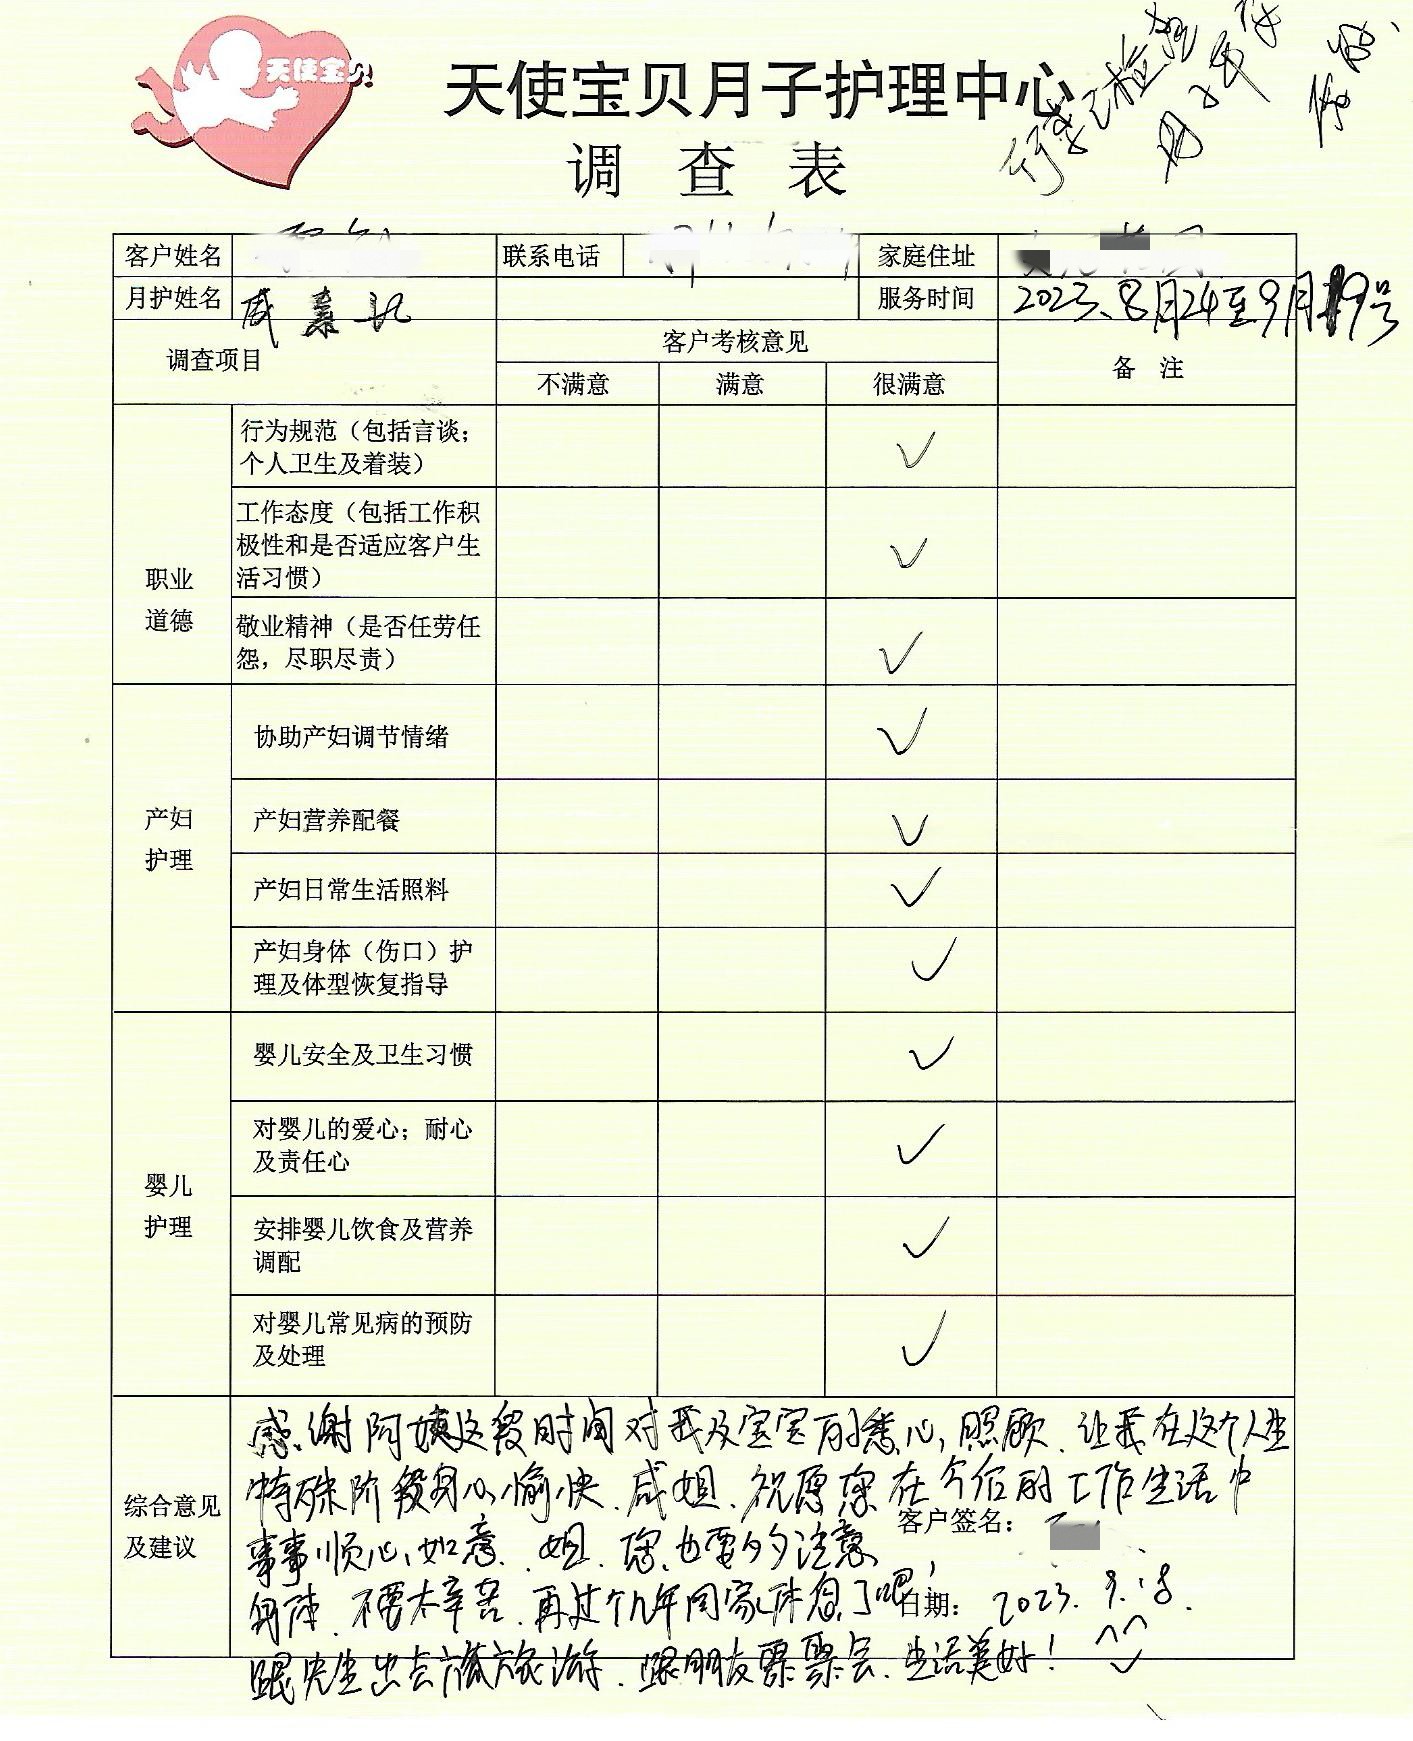 天使宝贝
天使宝贝月子护理中心
调 查 表
客户姓名 联系电话 家庭住址
月护姓名 服务时间 2023.8月24至9月19号
调查项目 客户考核意见 备 注
不满意 满意 很满意
职业
道德
行为规范（包括言谈；
个人卫生及着装） ✓
工作态度（包括工作积
极性和是否适应客户生
活习惯） ✓
敬业精神（是否任劳任
怨，尽职尽责） ✓
产妇
护理
协助产妇调节情绪 ✓
产妇营养配餐 ✓
产妇日常生活照料 ✓
产妇身体（伤口）护
理及体型恢复指导 ✓
婴儿
护理
婴儿安全及卫生习惯 ✓
对婴儿的爱心；耐心
及责任心 ✓
安排婴儿饮食及营养
调配 ✓
对婴儿常见病的预防
及处理 ✓
综合意见
及建议
感谢阿姨这段时间对我及宝宝的悉心照顾.让我在这个人生
特殊阶段身心愉快.戚姐.祝愿您在今后的工作生活中
事事顺心,如意.姐.您也要多多注意
客户签名：
身体.不要太辛苦.再过个几年回家休息了喂,
日期： 2023.9.18.
跟先生出去旅旅游.跟朋友聚聚会.生活美好!